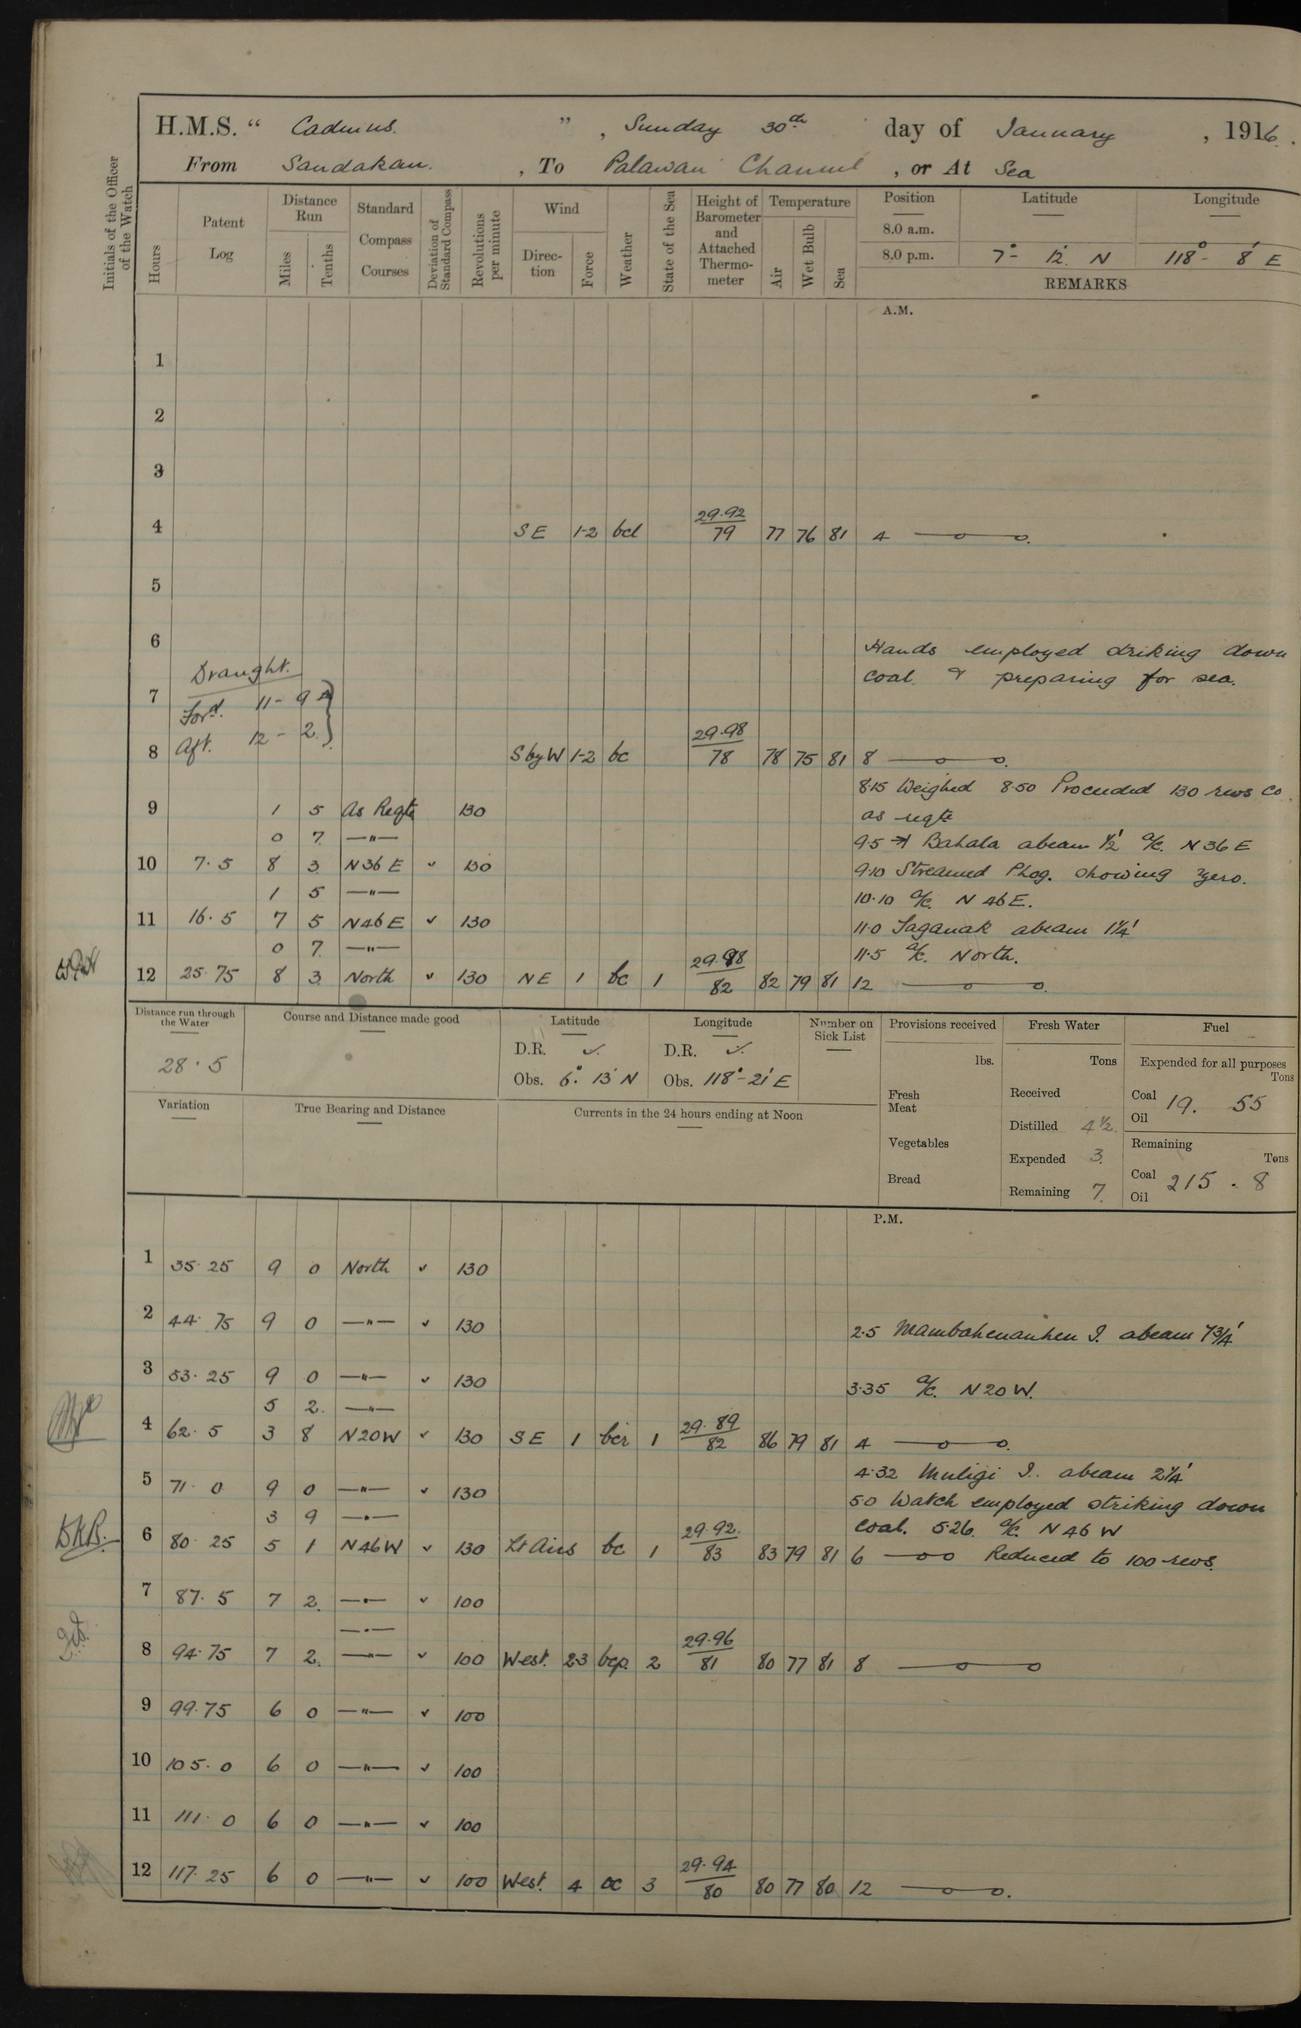 H.M.S. “ Cadmus. ” , Sunday 30th day of January , 1916.
From Sandakan. , To Palawan Channel , or At Sea
Initials of the Officer of the Watch
Hours
Patent Log
Distance Run
Miles
Tenths
Standard Compass Courses
Deviation of Standard Compass
Revolutions per minute
Wind
Direction
Force
Weather
State of the Sea
Height of Barometer and Attached Thermometer
Temperature
Air
Wet Bulb
Sea
Position Latitude Longitude
8.0 a.m.
8.0 p.m. 7° - 12' N 118° - 8' E
REMARKS
A.M.
1
2
3
4 SE 1-2 bcl 29.92 79 77 76 81 4
5
6
Hands employed striking down
Draught.
7 coal & preparing for sea.
Ford. 11 - 9
Aft. 12 - 2
8 S by W 1-2 bc 29.98 78 78 75 81 8
8.15 Weighed 8.50 Proceeded 130 revs Co
9 1 5 As Reqte 130 as reqte
0 7 —"— 9.5 Bahala abeam 1/2' a/c. N 36 E
10 7.5 8 3 N36E ✓ 130 9.10 Streamed Plog. showing zero.
1 5 —"— 10.10 a/c. N 46 E.
11 16.5 7 5 N46E ✓ 130 11.0 Taganak abeam 1 1/4'
0 7 —"— 11.5 a/c. North.
12 25.75 8 3 North ✓ 130 NE 1 bc 1 29.98 82 82 79 81 12
Distance run through the Water
28.5
Course and Distance made good
Latitude
D.R. ✓
Obs. 6° 13' N
Longitude
D.R. ✓
Obs. 118° - 21' E
Number on Sick List
Provisions received
lbs.
Fresh Meat
Vegetables
Bread
Fresh Water
Tons
Received
Distilled 4 1/2
Expended 3
Remaining 7
Fuel
Expended for all purposes
Tons
Coal 19. 55
Oil
Remaining
Tons
Coal 215.8
Oil
Variation
True Bearing and Distance
Currents in the 24 hours ending at Noon
P.M.
1 35.25 9 0 North ✓ 130
2 44.75 9 0 —"— ✓ 130
2.5 Mambahenauhen I. abeam 7 3/4'
3 53.25 9 0 —"— ✓ 130
3.35 a/c. N 20 W.
5 2 —"—
4 62.5 3 8 N20W ✓ 130 SE 1 bcr 1 29.89 82 86 79 81 4
4.32 Muligi I. abeam 2 1/4'
5 71.0 9 0 —"— ✓ 130
5.0 Watch employed striking down
3 9 —"— coal. 5.26. a/c. N 46 W
DKB.
6 80.25 5 1 N46W ✓ 130 Lt Airs bc 1 29.92 83 83 79 81 6 Reduced to 100 revs.
7 87.5 7 2 —"— ✓ 100
—"—
8 94.75 7 2 —"— ✓ 100 West. 2.3 bcp. 2 29.96 81 80 77 81 8
9 99.75 6 0 —"— ✓ 100
10 105.0 6 0 —"— ✓ 100
11 111.0 6 0 —"— ✓ 100
12 117.25 6 0 —"— ✓ 100 West. 4 oc 3 29.94 80 80 77 80 12